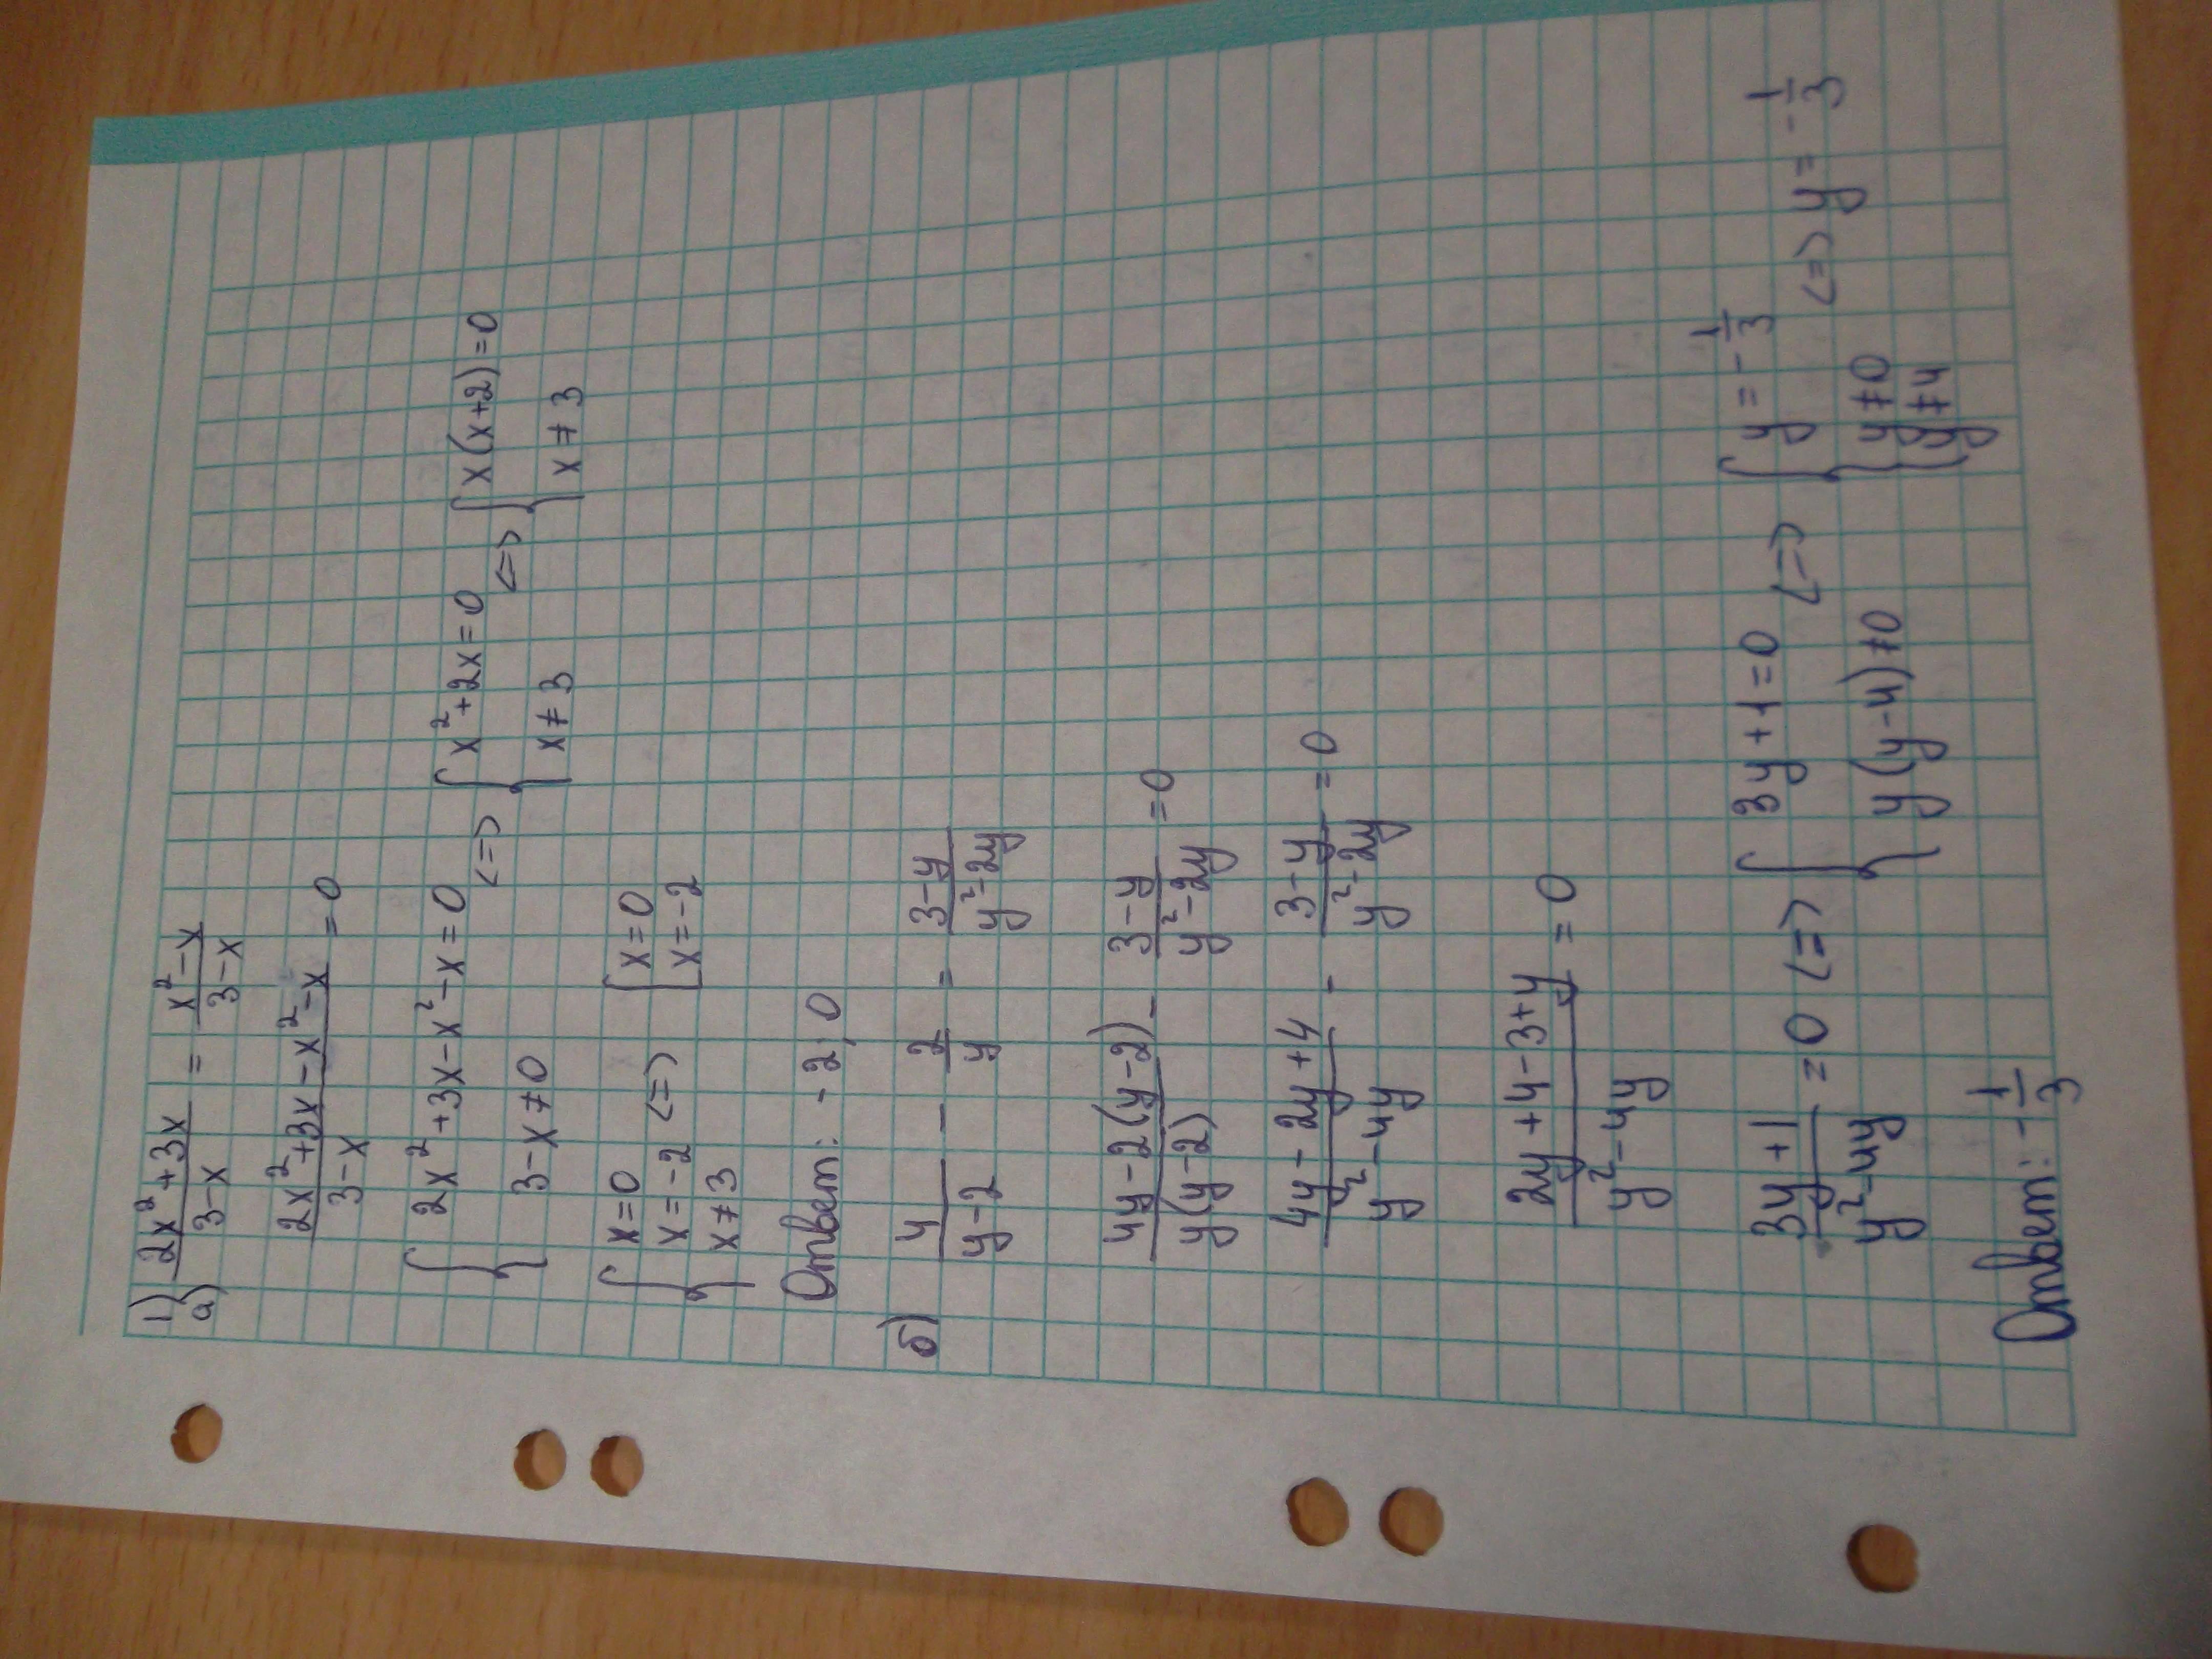 1)
а) (2x²+3x)/(3-x) = (x²-x)/(3-x)
(2x²+3x-x²-x)/(3-x) = 0
{ 2x²+3x-x²-x=0 ; 3-x≠0 <=> { x²+2x=0 ; x≠3 <=> { x(x+2)=0 ; x≠3
{ x=0 ; x=-2 ; x≠3 <=> [ x=0 ; x=-2
Ответ: -2; 0
б) 4/(y-2) - 2/y = (3-y)/(y²-2y)
(4y-2(y-2))/(y(y-2)) - (3-y)/(y²-2y) = 0
(4y-2y+4)/(y²-4y) - (3-y)/(y²-2y) = 0
(2y+4-3+y)/(y²-4y) = 0
(3y+1)/(y²-4y) = 0 <=> { 3y+1=0 ; y(y-4)≠0 <=> { y=-1/3 ; { y≠0 ; y≠4 <=> y=-1/3
Ответ: -1/3